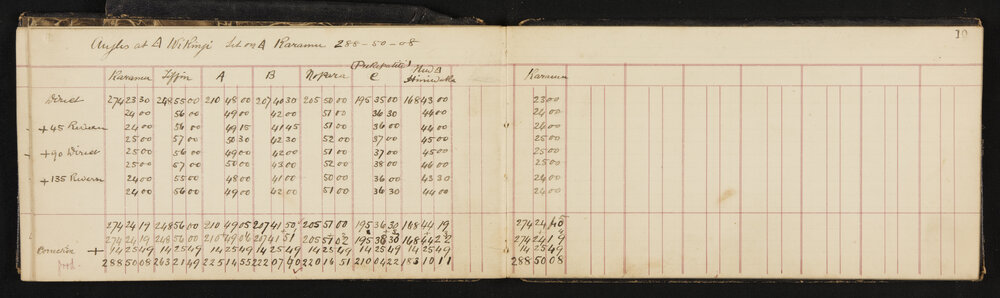 10
Angles at Δ Wi Kingi Set on Δ Karamu 288-50-08
(Pukepatito) New Δ
Karamu Tiffin A B No Para C Karamu
Direct 274 23 30 248 55 00 210 48 00 207 40 30 205 50 00 195 35 00 168 43 00 23 00
24 00 56 00 49 00 42 00 51 00 36 30 44 00 24 00
+45 Revers 24 00 56 00 49 15 41 45 51 00 36 00 44 00 24 00
25 00 57 00 50 30 42 30 52 00 37 00 45 00 25 00
+90 Direct 25 00 56 00 49 00 42 00 51 00 37 00 45 00 25 00
25 00 57 00 50 00 43 00 52 00 38 00 46 00 25 00
+135 Revers 24 00 55 00 48 00 41 00 50 00 36 00 43 30 24 00
24 00 56 00 49 00 42 00 51 00 36 30 44 00 24 00
274 24 19 248 56 00 210 49 05 207 41 50 205 51 00 195 36 30 168 44 19 274 24
274 24 19 248 56 00 210 49 06 207 41 51 205 51 02 195 36 30 168 44 22 274 24 19
Correction + 14 25 49 14 25 49 14 25 49 14 25 49 14 25 49 14 25 49 14 25 49 14 25 49
288 50 08 263 21 49 225 14 55 222 07 40 220 16 51 210 04 22 183 10 11 288 50 08